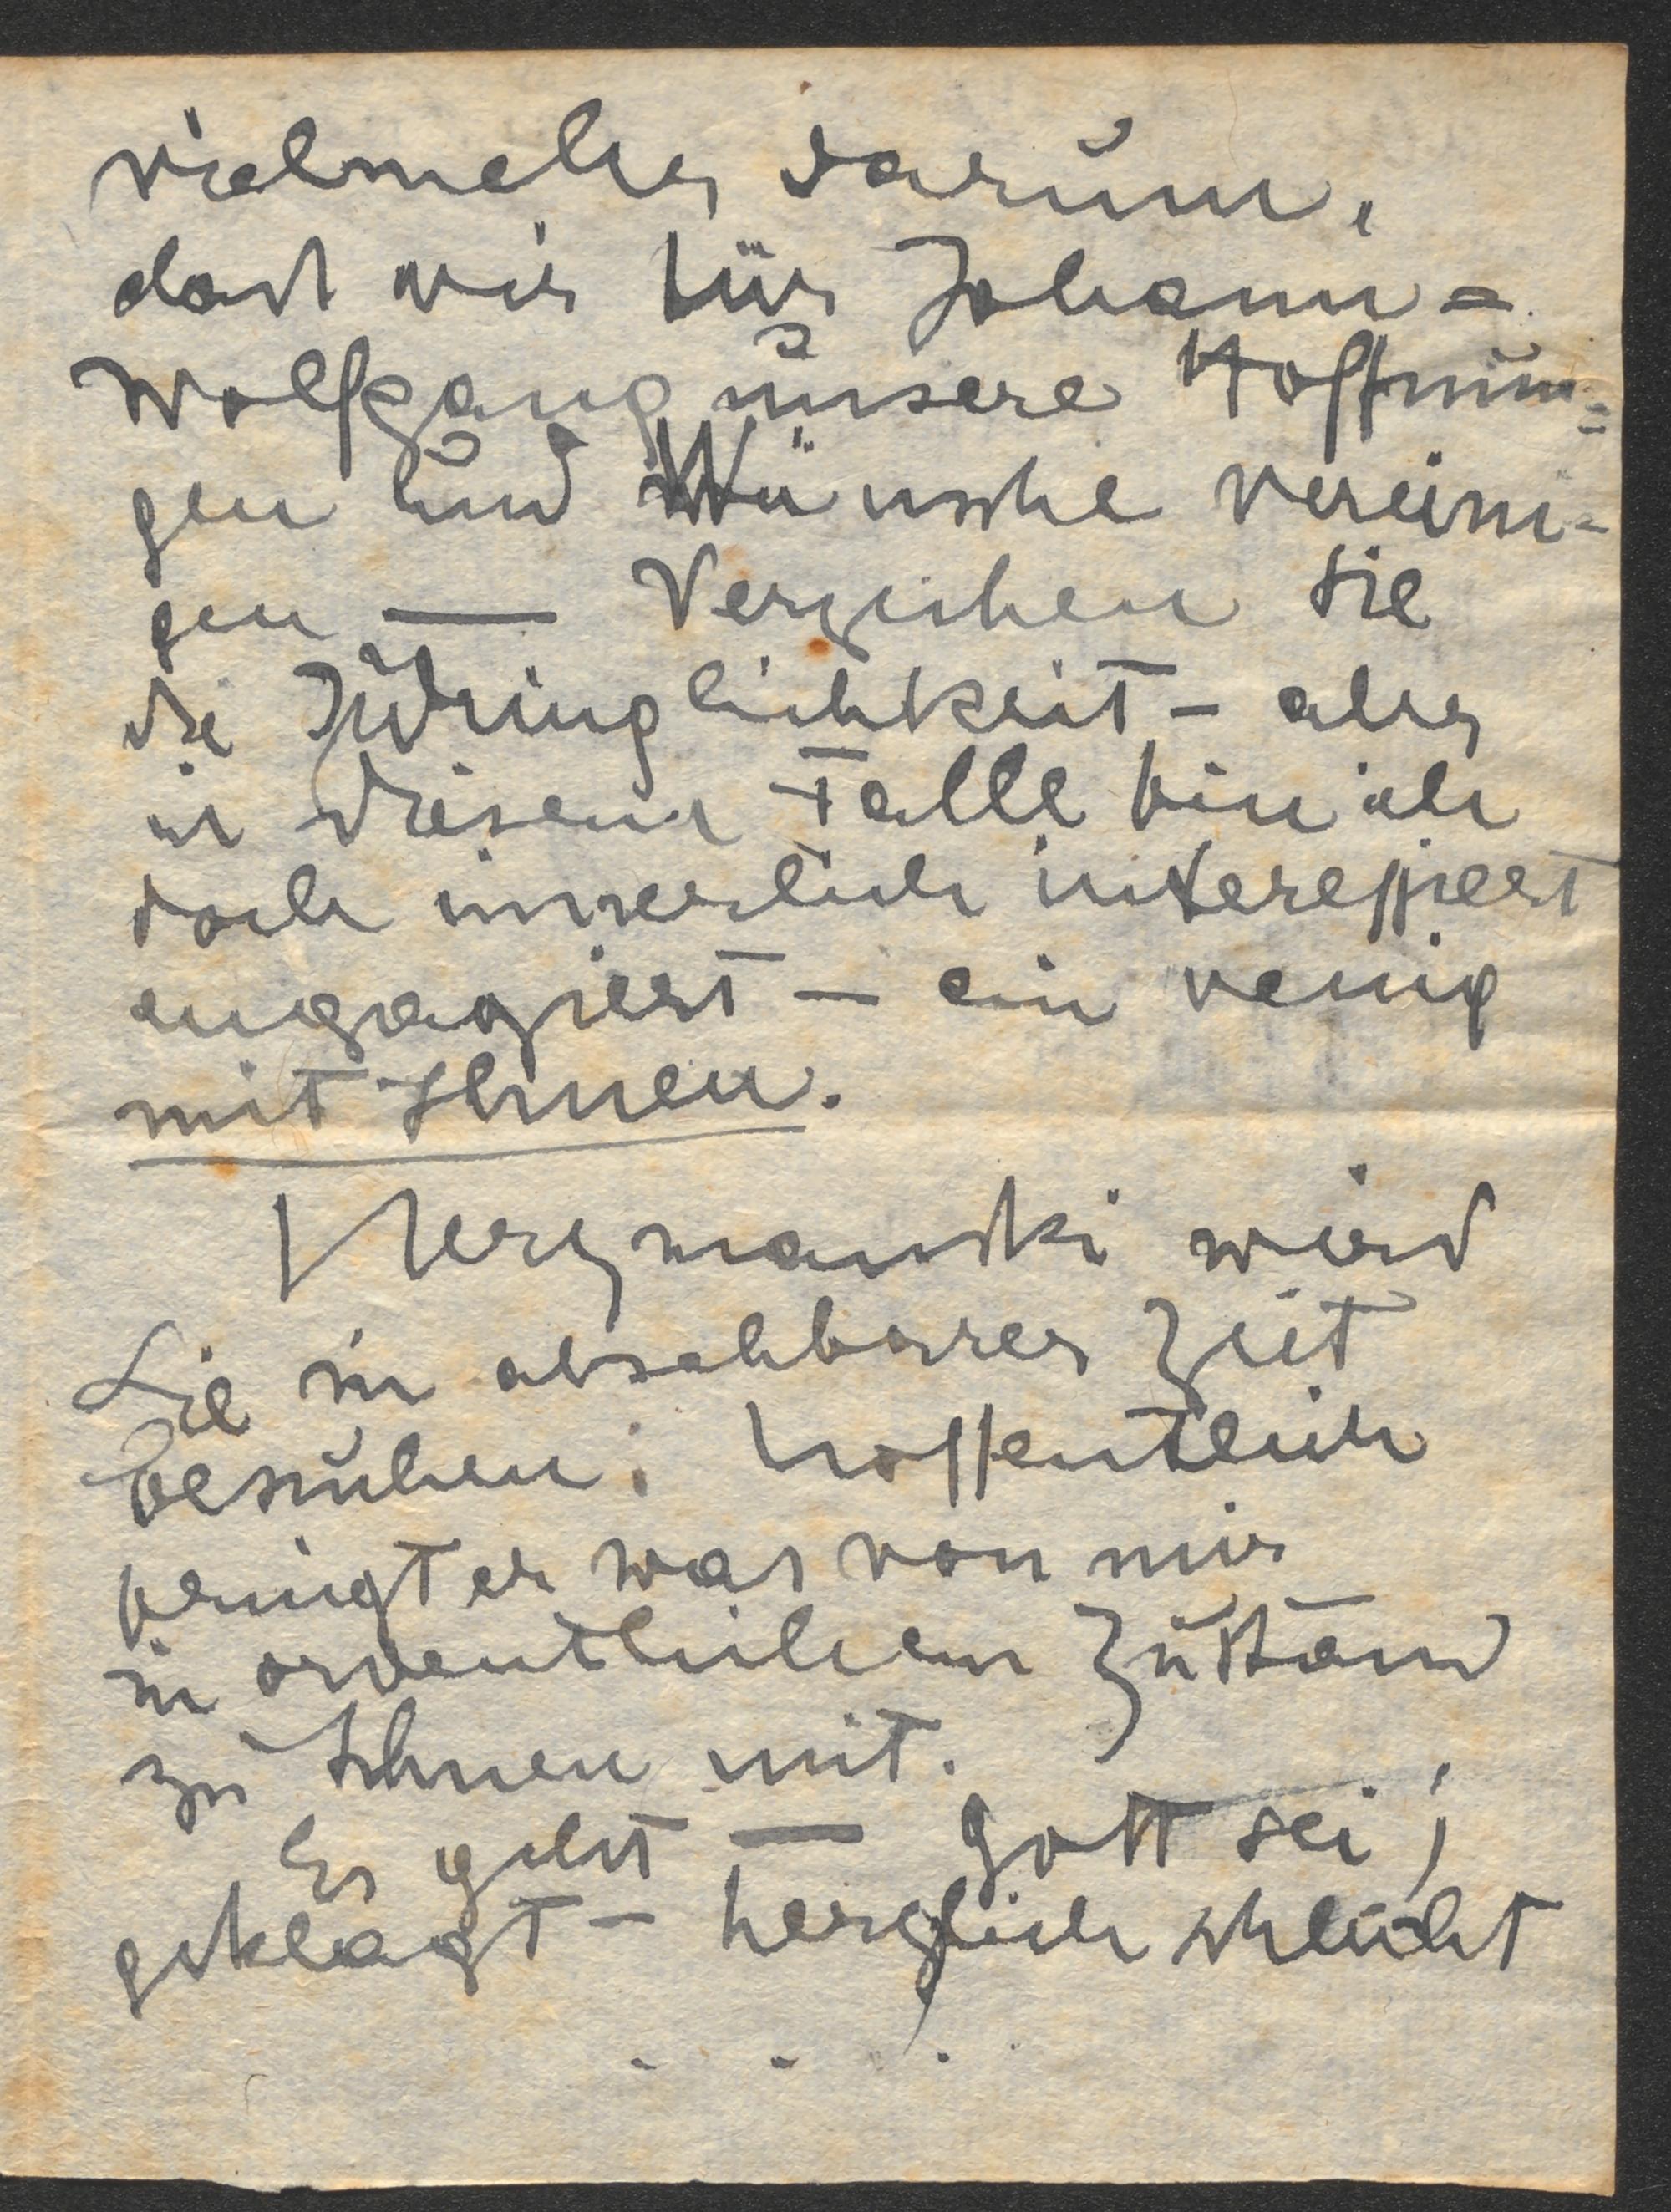 vielmehr darum,
dass wir für Johann=
Wolfgang unsere Hoffnun=
gen und Wünsche verein-
gen — Verzeihen Sie
die Zudringlichkeit – aber
in diesem Falle bin ich
doch innerlich interessiert
engagiert – ein wenig
mit Ihnen.
wird
Sie in absehbarer Zeit
besuchen; hoffentlich
bringt er was von mir
in ordentlichem Zustand
zu Ihnen mit.
Es geht — Gott sei
geklagt – herzlich schlecht
. . .